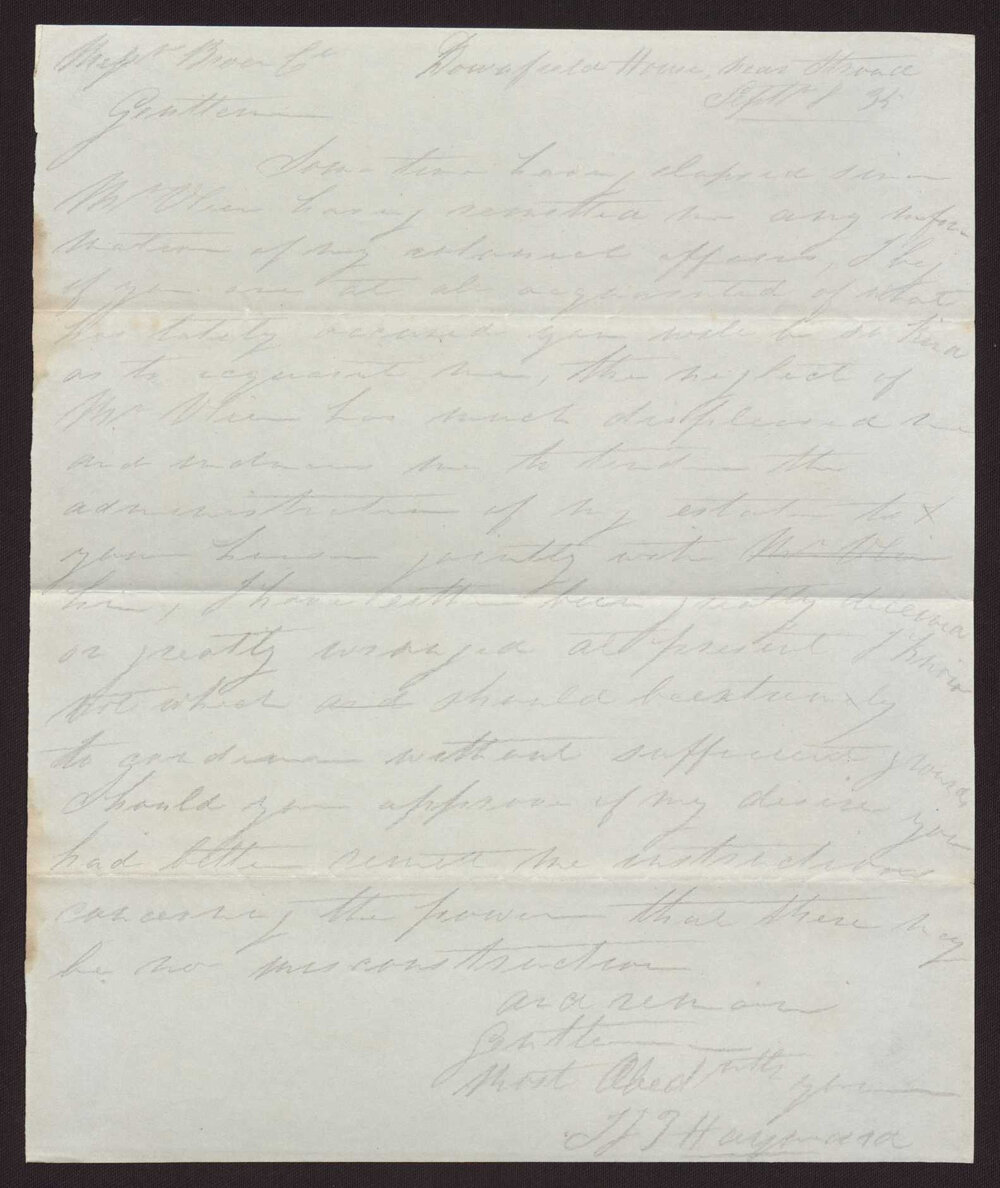 Messrs Brown & Co Dowafield House, near Stroud
Septr 8 35
Gentlemen
Some time having elapsed since
Mr having remitted me any infor
mation of my colonial affairs, I beg
if you are at all acquainted of what
has lately occured you will be so kind
as to acquaint me, the neglect of
Mr has much displeased me
and induces me to tender the
administration of my estates to X
your house jointly with Mr
him, I have either been greatly deceived
or greatly wronged at present I know
not which and should be extremely
to condemn without sufficient grounds
Should you approve of my desire you
had better remit me instructions
concerning the power that there may
be no misconstruction
and remain
Gentlemen
Most Obedtly
yours
Hayward